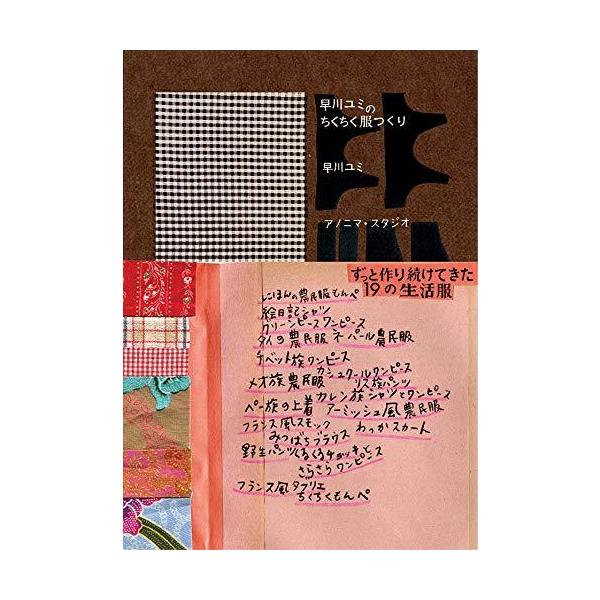 早川ユミの
ちくちく服つくり
早川ユミ
アノニマ・スタジオ
ずっと作り続けてきた
19の生活服
にほんの農民服もんぺ
絵日記シャツ
グリーンピースワンピース
タイの農民服 ネパール農民服
チベット族ワンピース
メオ族農民服 カシュクールワンピース
リス族パンツ
ペー族の上着 カレン族シャツとワンピース
アーミッシュ風農民服
フランス風スモック
みつばちブラウス わっかスカート
野生パンツ くるくるチョッキと
さらさらワンピース
フランス風タブリエ
ちくちくもんぺ